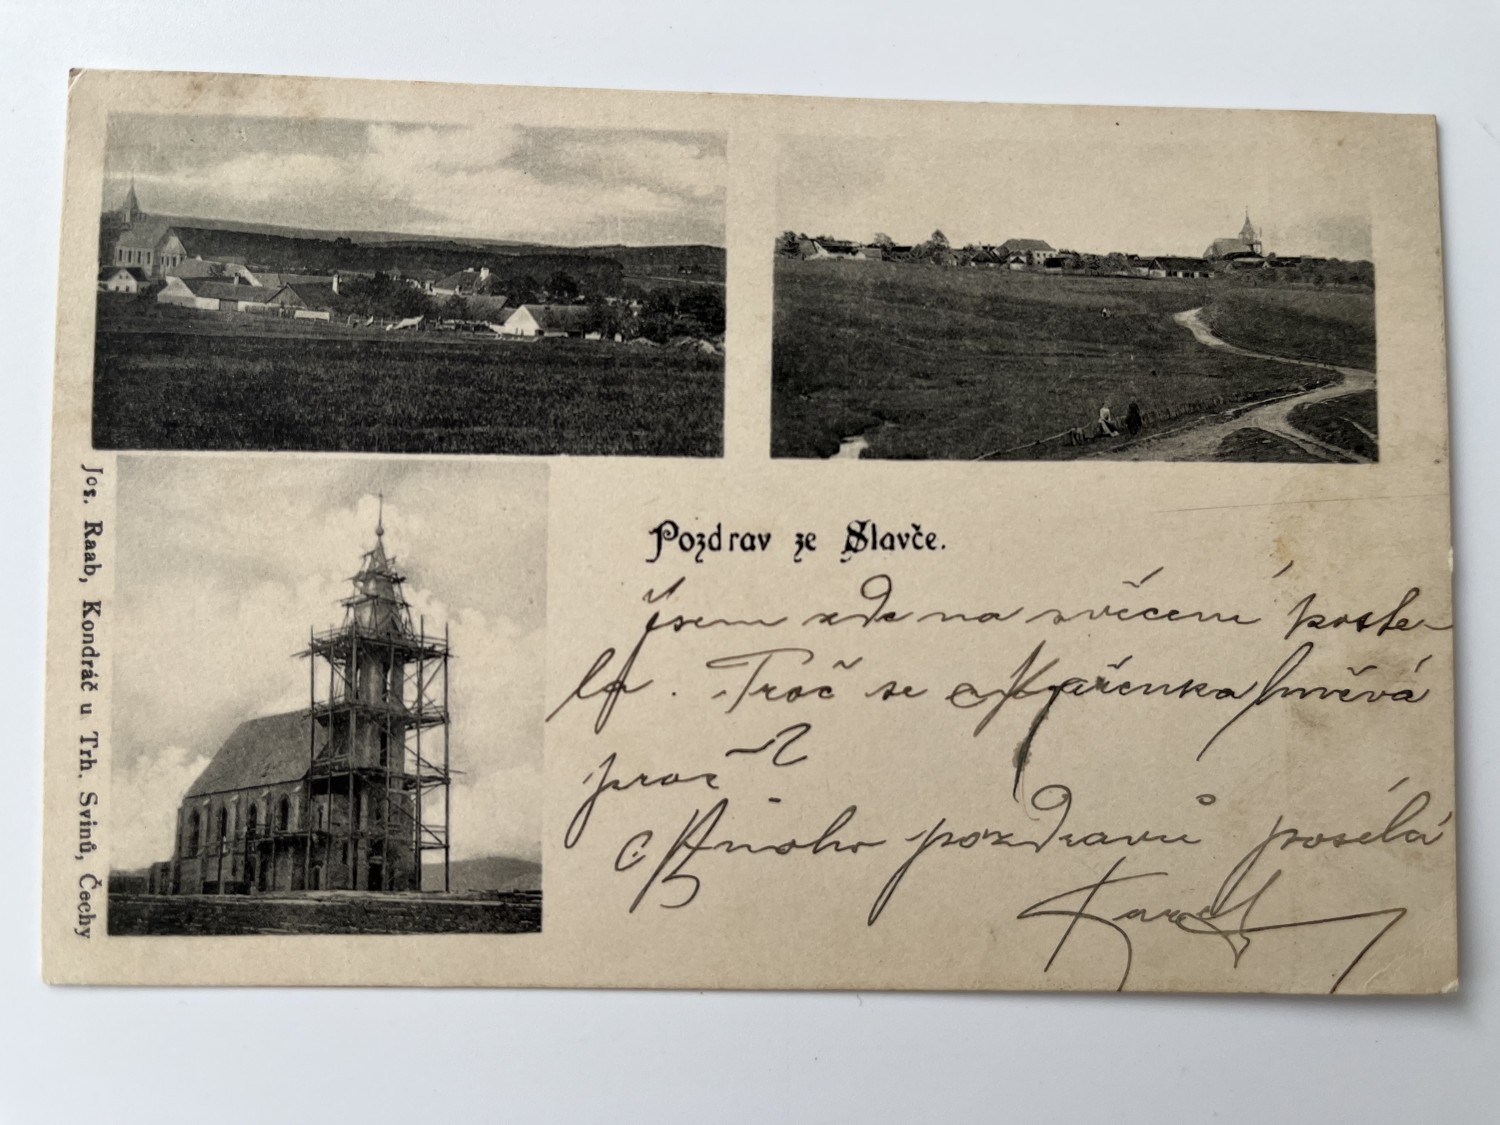 Pozdrav ze Slavče.
Jsem zde na svěcení koste-
la. Proč se Mařenka hněvá
proč?
Mnoho pozdravů posílá
Karel
Jos. Raab, Kondráč u Trh. Svinů, Čechy